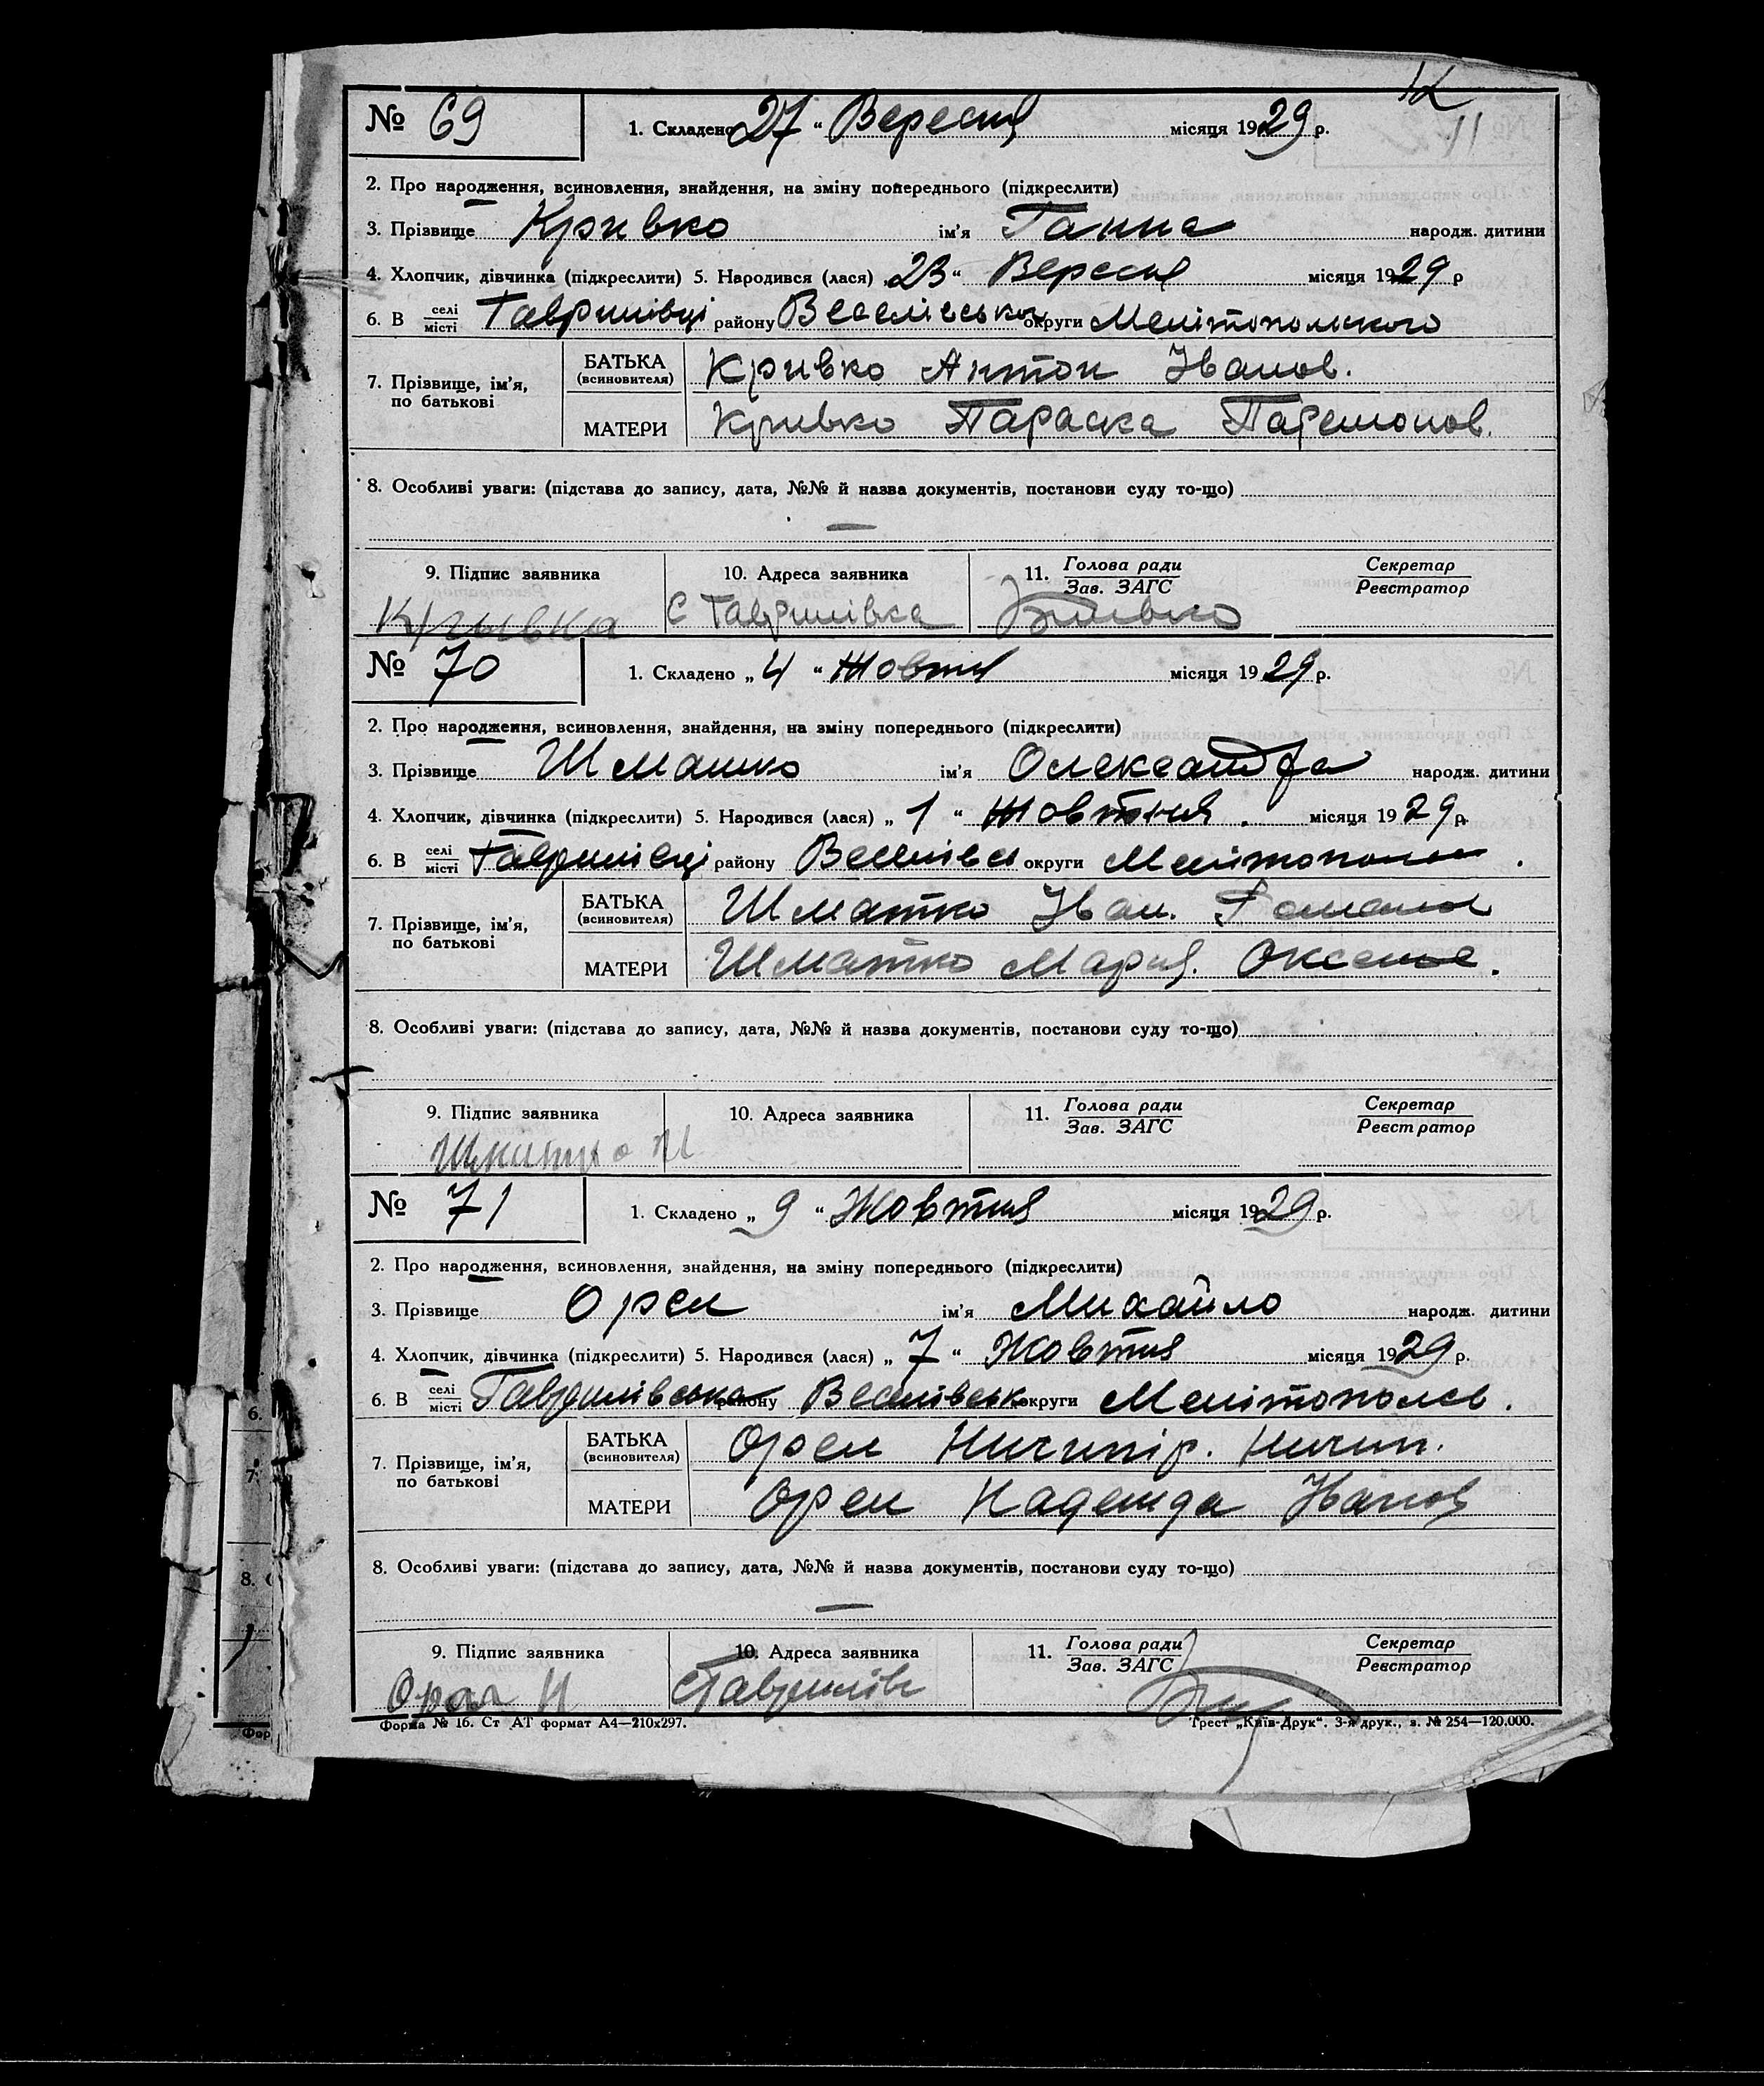 12
11
№ 69
1. Складено 27 “ Вересня місяця 1929 р.
2. Про народження, всиновлення, знайдення, на зміну попереднього (підкреслити)
3. Прізвище Кривко ім’я Ганна народж. дитини
4. Хлопчик, дівчинка (підкреслити) 5. Народився (лася) „23“ Вересня місяця 1929 р
6. В селі місті Гаврилівці району Веселівсько округи Мелітопольского
7. Прізвище, ім’я, по батькові
БАТЬКА (всиновителя) Кривко Антон Іванов.
МАТЕРИ Кривко Параска Парамонов.
8. Особливі уваги: (підстава до запису, дата, №№ й назва документів, постанови суду то-що)
—
9. Підпис заявника 10. Адреса заявника 11. Голова ради Зав. ЗАГС Секретар Реєстратор
Кривка С Гаврилівка
№ 70
1. Складено „ 4 “ Жовтня місяця 1929 р.
2. Про народження, всиновлення, знайдення, на зміну попереднього (підкреслити)
3. Прізвище Шматко ім’я Олександра народж. дитини
4. Хлопчик, дівчинка (підкреслити) 5. Народився (лася) „ 1 “ Жовтня . місяця 1929 р.
6. В селі місті Гаврилівці району Веселівсь округи Мелітополь .
7. Прізвище, ім’я, по батькові
БАТЬКА (всиновителя) Шматко Іван. Романов
МАТЕРИ Шматко Мария.
8. Особливі уваги: (підстава до запису, дата, №№ й назва документів, постанови суду то-що)
9. Підпис заявника 10. Адреса заявника 11. Голова ради Зав. ЗАГС Секретар Реєстратор
Шматко
№ 71
1. Складено „ 9 “ Жовтня місяця 1929 р.
2. Про народження, всиновлення, знайдення, на зміну попереднього (підкреслити)
3. Прізвище Орел ім’я Михайло народж. дитини
4. Хлопчик, дівчинка (підкреслити) 5. Народився (лася) „ 7 “ Жовтня місяця 1929 р.
6. В селі місті Гаврилівська району Веселівськ округи Мелітополсь .
7. Прізвище, ім’я, по батькові
БАТЬКА (всиновителя) Орел Ничипір. Ничип.
МАТЕРИ Орел Надежда Іванов
8. Особливі уваги: (підстава до запису, дата, №№ й назва документів, постанови суду то-що)
—
9. Підпис заявника 10. Адреса заявника 11. Голова ради Зав. ЗАГС Секретар Реєстратор
Орел Н сГаврилівк
Форма № 16. Ст АТ формат А4—210х297. Трест „Київ-Друк“. 3-я друк., з. № 254—120.000.